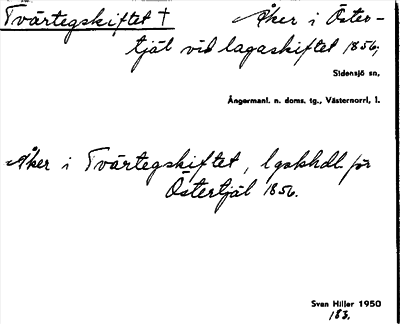 Tvärtegskiftet † Åker i Öster-
tjäl vid lagaskiftet 1856;
Sidensjö sn,
Ångermanl. n. doms. tg., Västernorrl, l.
Åker i Tvärtegskiftet, lgskhdl. för
Östertjäl 1856.
Svan Hiller 1950
183.